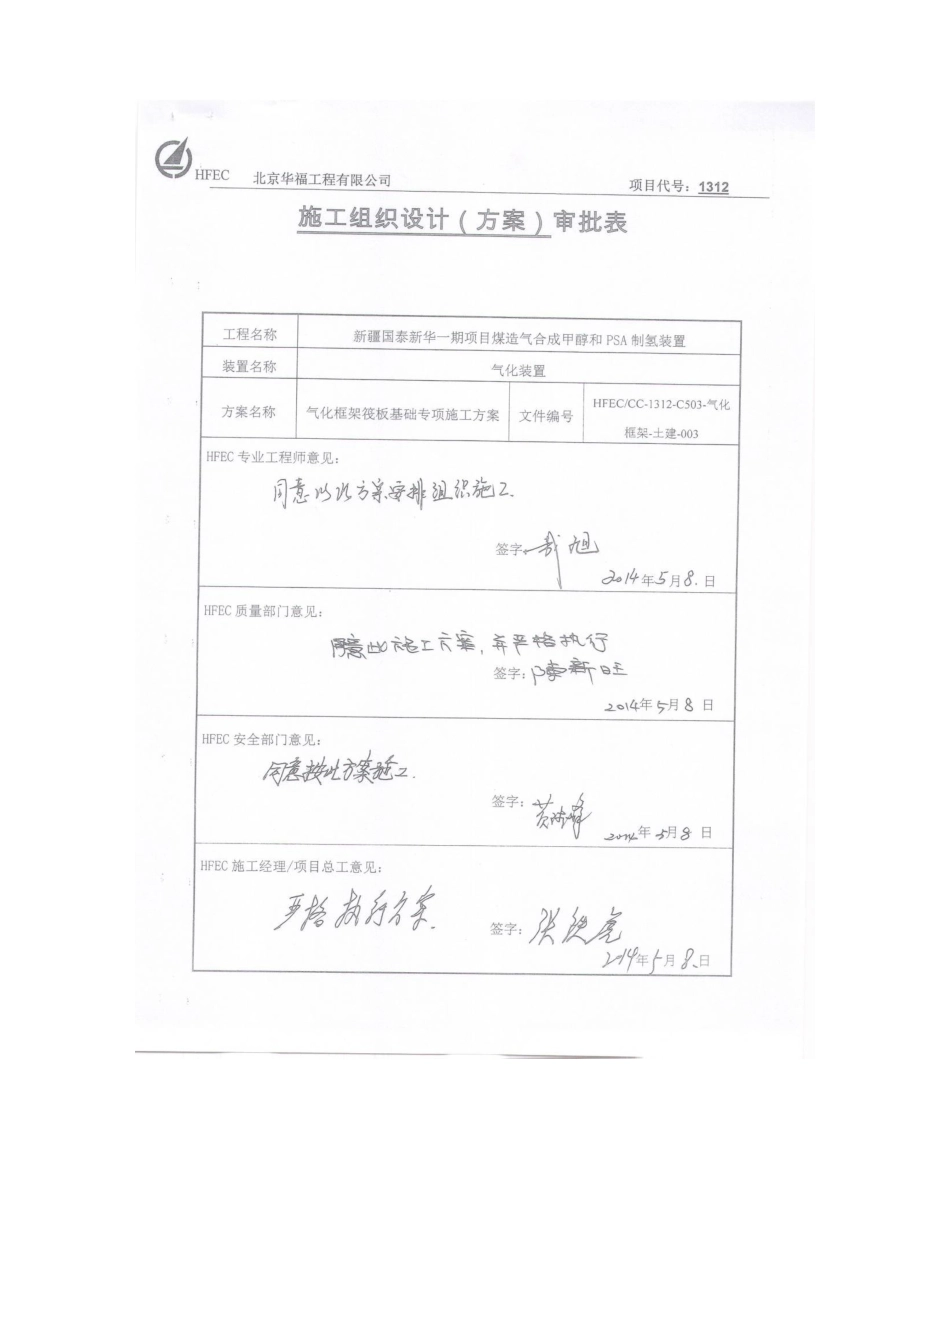 HFEC 北京华福工程有限公司 项目代号：1312
施工组织设计（方案）审批表
工程名称 新疆国泰新华一期项目煤造气合成甲醇和 PSA 制氢装置
装置名称 气化装置
方案名称 气化框架筏板基础专项施工方案 文件编号 HFEC/CC-1312-C503-气化
框架-土建-003
HFEC 专业工程师意见：
同意以此方案安排组织施工.
签字: 旭
2014年5月8.日
HFEC 质量部门意见：
同意此施工方案，并严格执行
签字：陈新旺
2014年5月8日
HFEC 安全部门意见：
同意按此方案施工.
签字：黄 峰
2014年5月8日
HFEC 施工经理/项目总工意见：
严格执行方案.
签字：张
2014年5月8.日